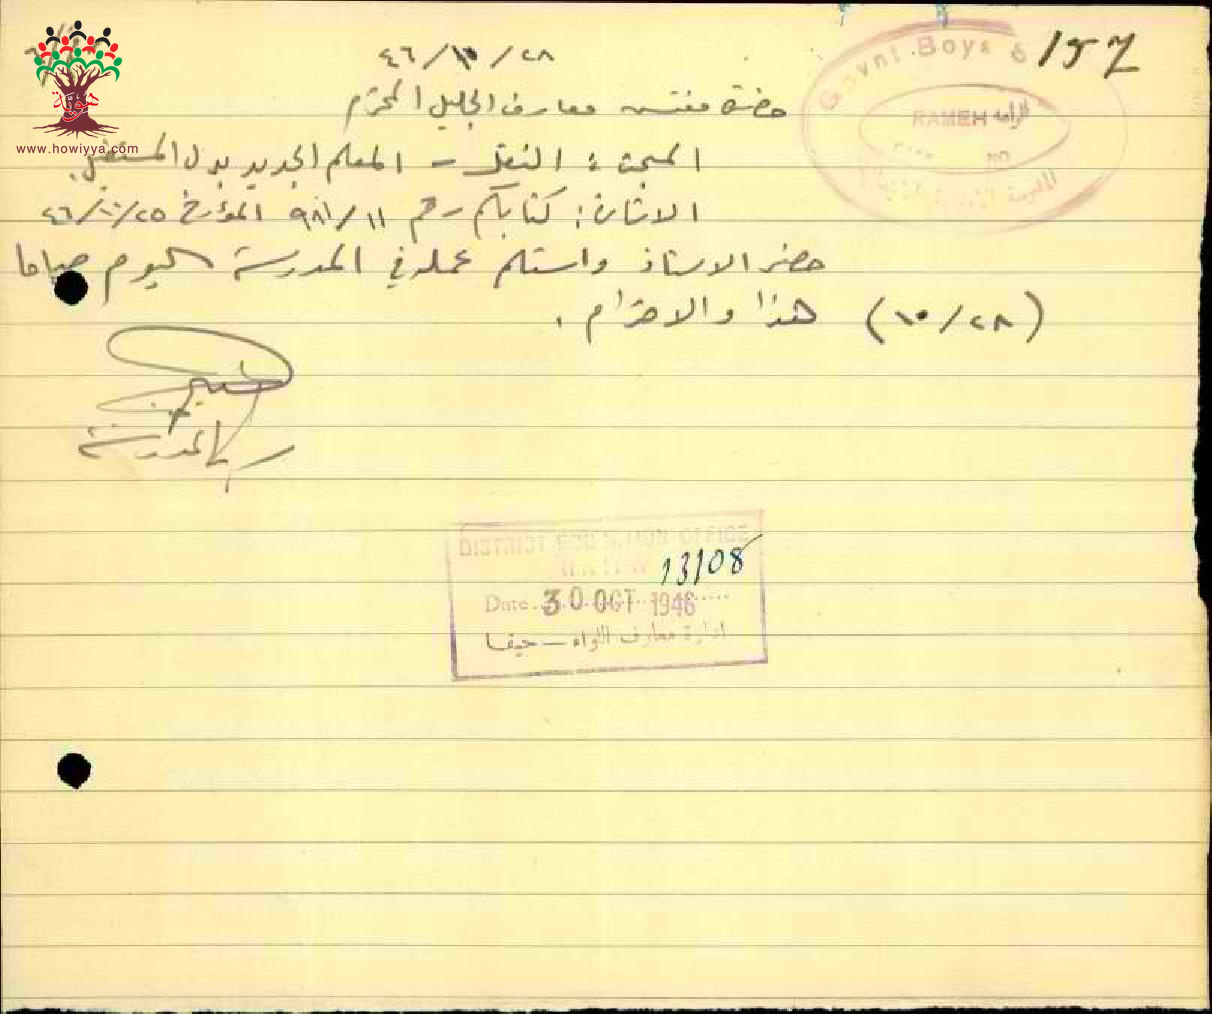 هوية
www.howiyya.com
157
Govnt. Boys S
RAMEH الرامة
٢٨/١٠/٤٦
حضرة مفتش معارف الجليل المحترم
المبحث : النقل – المعلم الجديد بدل المستقيل.
الاشارة : كتابكم رقم ٩٨١/١١ المؤرخ ٢٥/١٠/٤٦
حضر الاستاذ واستلم عمله في المدرسة اليوم صباحا
(٢٨/١٠) هذا والاحترام .
مدير المدرسة
DISTRICT EDUCATION OFFICE
13108
Date. 30 OCT 1946
ادارة معارف اللواء – حيفا